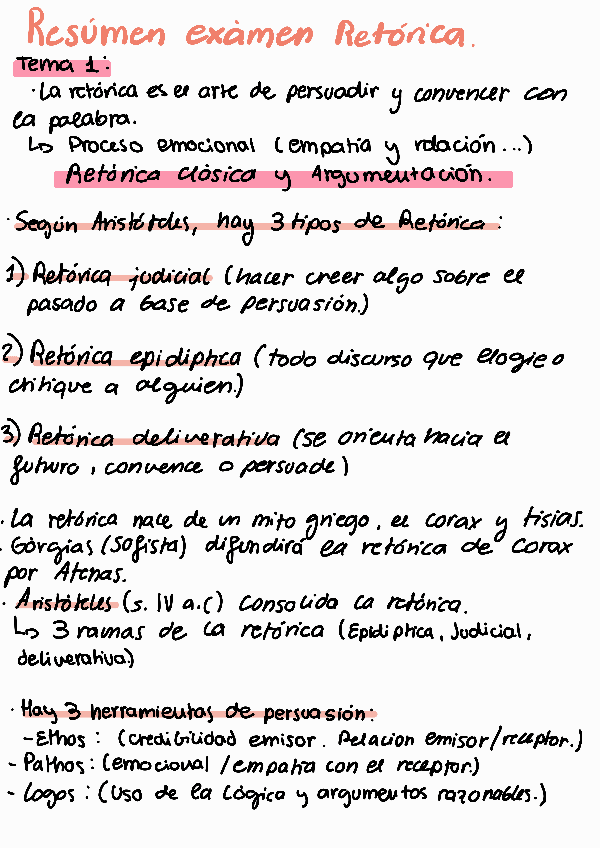 Resúmen exàmen Retórica.
Tema 1:
· La retórica es el arte de persuadir y convencer con
la palabra.
↳ Proceso emocional (empatía y relación...)
Retórica clásica y Argumentación.
· Según Aristóteles, hay 3 tipos de Retórica:
1) Retórica judicial (hacer creer algo sobre el
pasado a base de persuasión.)
2) Retórica epidiptica (todo discurso que elogie o
critique a alguien.)
3) Retórica deliverativa (se orienta hacia el
futuro, convence o persuade)
· La retórica nace de un mito griego, el corax y tisias.
· Gòrgias (Sofista) difundirá la retórica de Corax
por Atenas.
· Aristóteles (s. IV a.C) consolida la retórica.
↳ 3 ramas de la retórica (Epidiptica, Judicial,
deliverativa)
· Hay 3 herramientas de persuasión:
- Ethos: (credibilidad emisor. Relacion emisor/receptor.)
- Pathos: (emocional / empatia con el receptor.)
- Logos: (Uso de la lógica y argumentos razonables.)